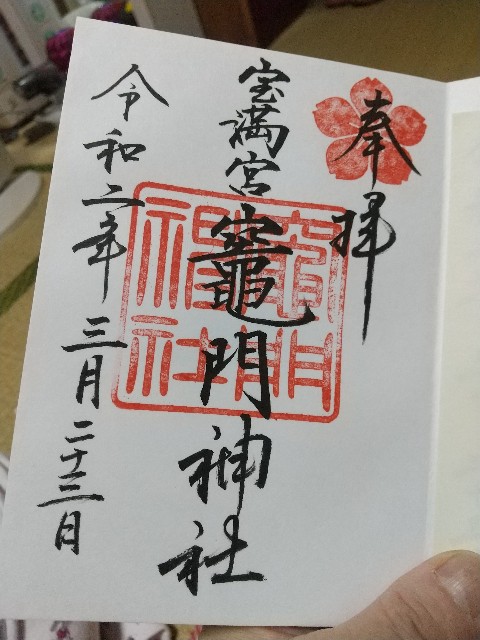 奉拝
宝満宮
竈門神社
竈門
神社
令和二年
三月
二十三日